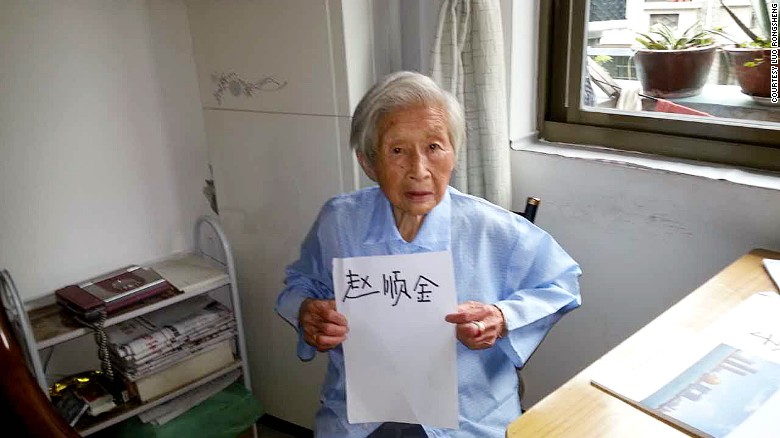 赵顺金
COURTESY LUO RONGSHENG